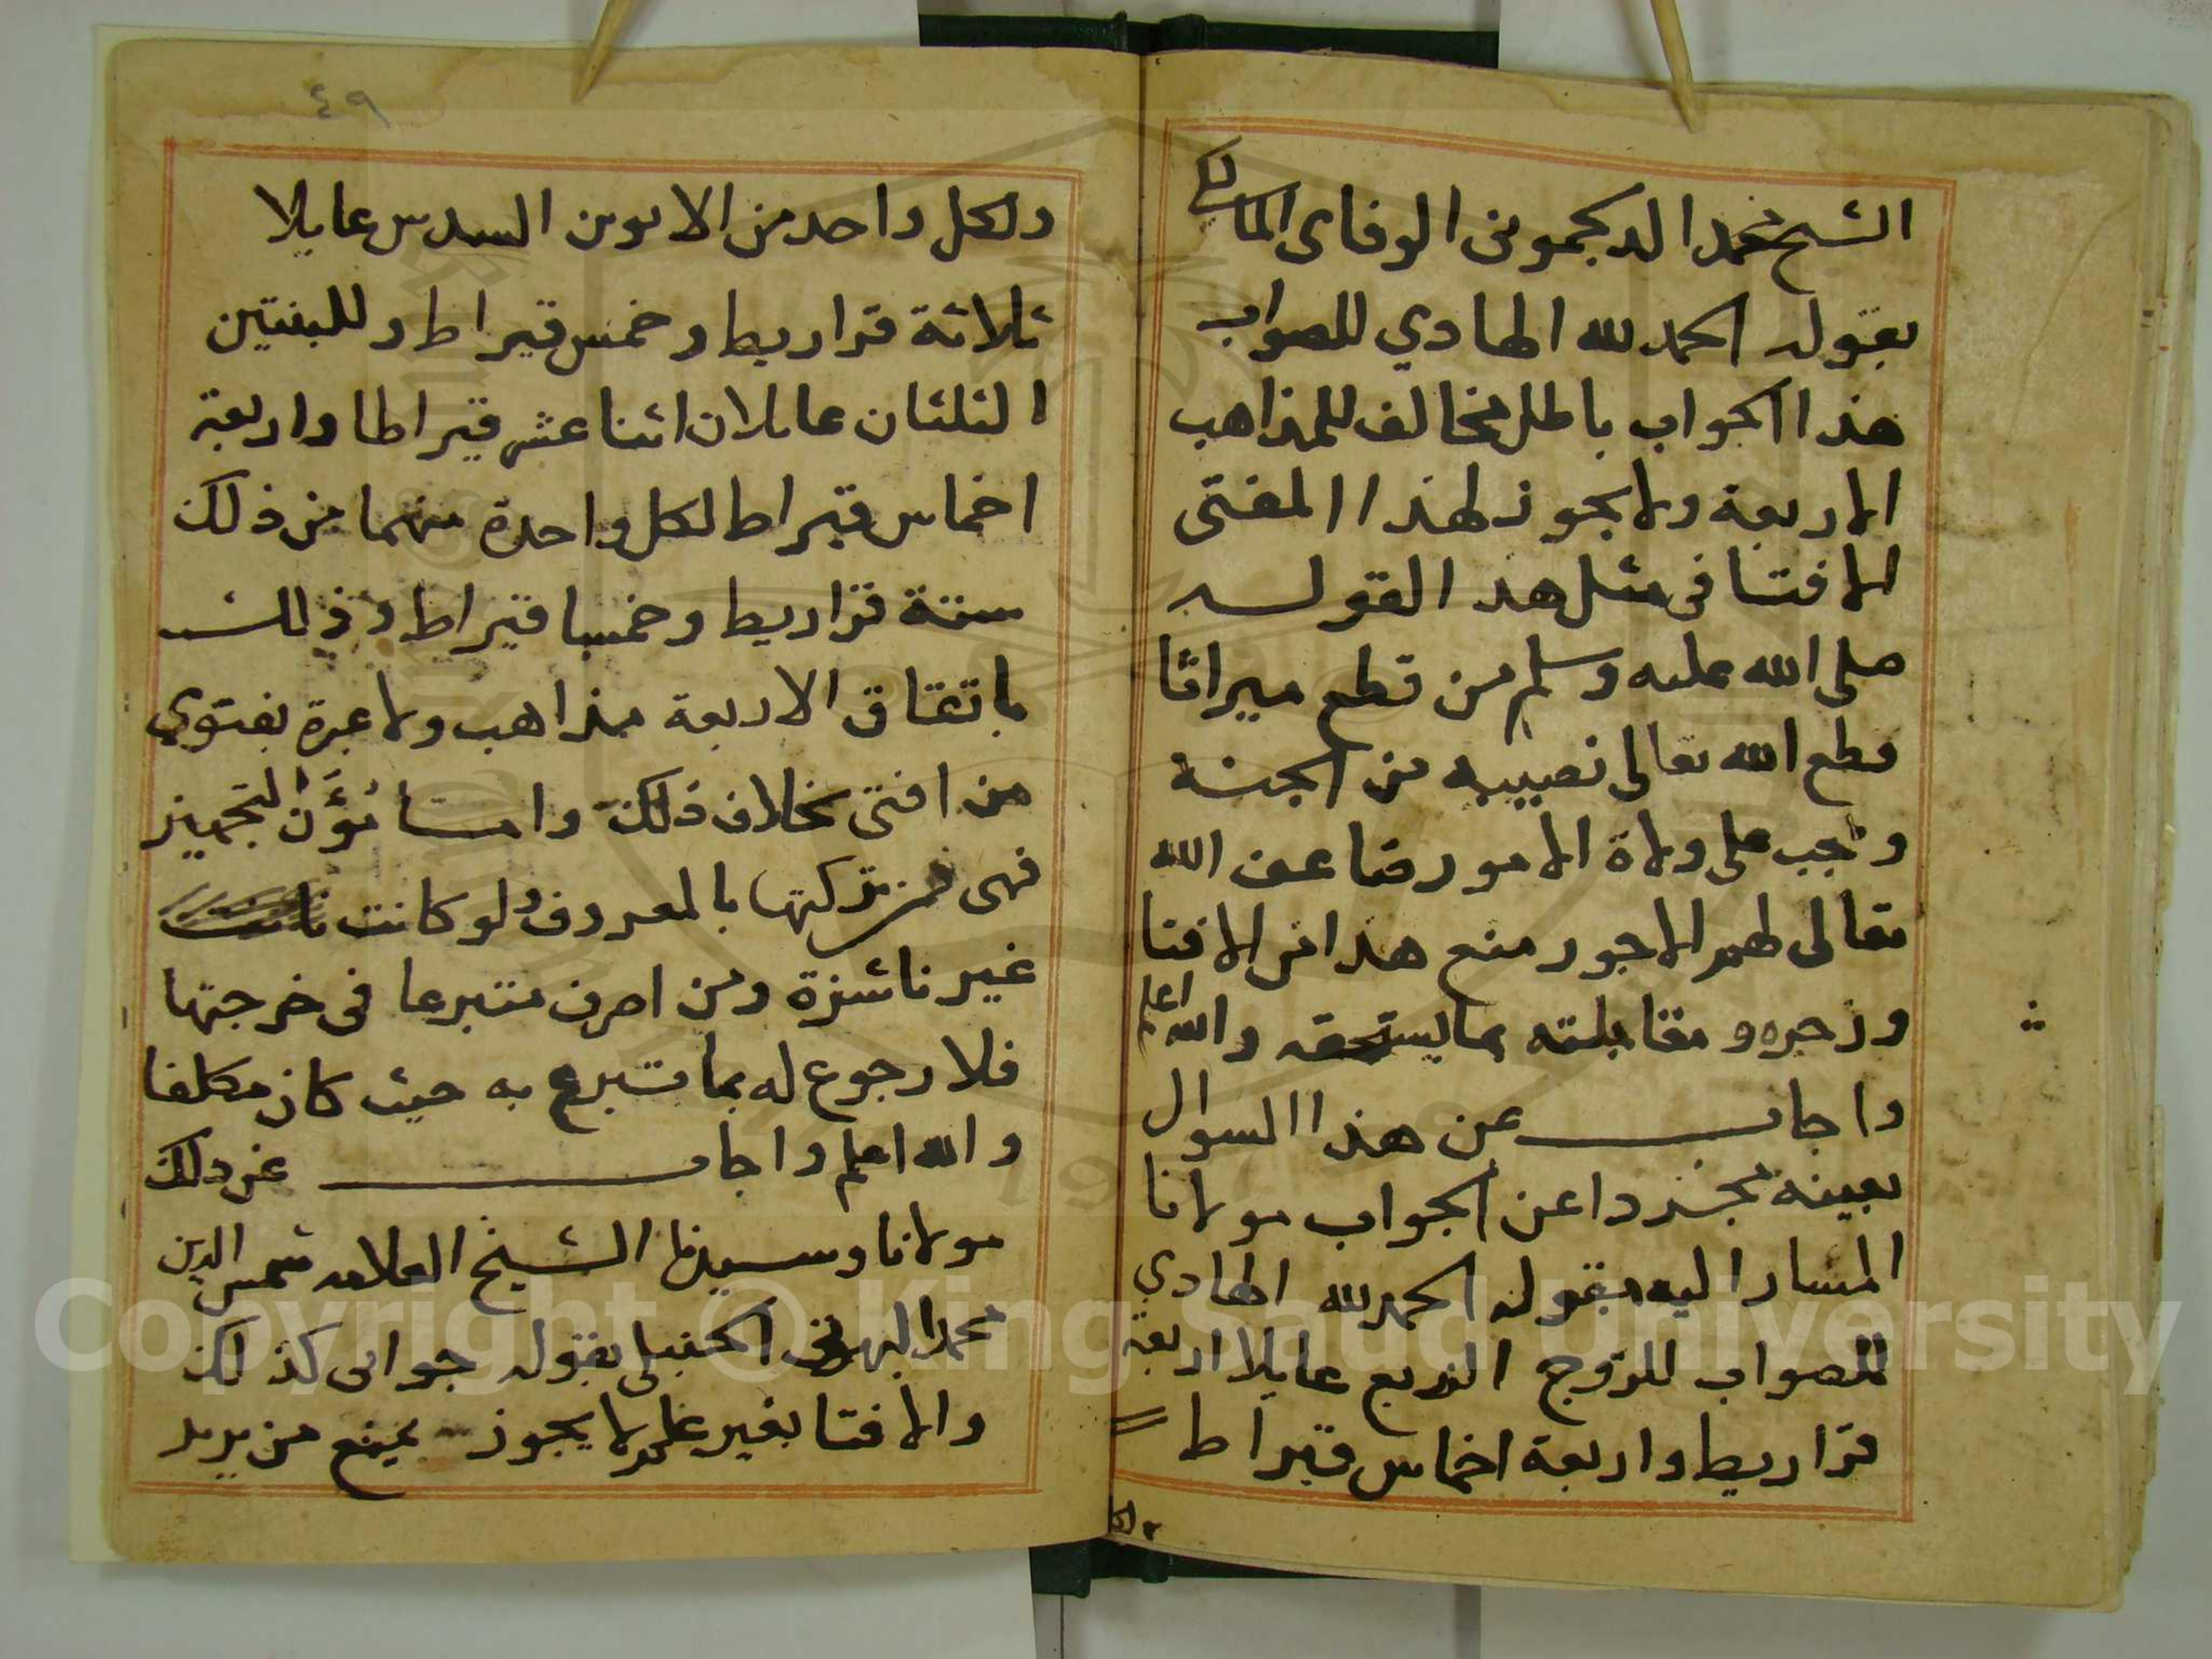 الشيخ محمد الدكجموني الوفاى المالكى
بقوله الحمد لله الهادي للصواب
هذا الجواب باطل مخالف للمذاهب
الاربعة ولا يجوز لهذا المفتى
الافتا فى مثل هذا لقوله
صلى الله عليه وسلم من قطع ميراثا
قطع الله تعالى نصيبه من الجنة
وتجب على ولاة الامور ضاعف الله
تعالى لهم الاجور منع هذا من الافتا
وزجره ومقابلته بما يستحقه والله اعلم
واجاب عن هذا السوال
بعينه مجردا عن الجواب مولانا
المشار اليه بقوله الحمد لله الهادي
للصواب للزوج الربع عايلا اربعة
قراريط واربعة اخماس قيراط
ولكل واحد من الابوين السدس عايلا
ثلاثة قراريط وخمس قيراط وللبنتين
الثلثان عايلان اثنا عشر قيراطا واربعة
اخماس قيراط لكل واحدة منهما من ذلك
ستة قراريط وخمسا قيراط وذلك
باتفاق الاربعة مذاهب ولا عبرة بفتوي
من افتى بخلاف ذلك واما مؤن التجهيز
فهى من تركتها بالمعروف ولو كانت
غير ناشزة ومن اصرف متبرعا فى خرجتها
فلا رجوع له بما تبرع به حيث كان مكلفا
والله اعلم واجاب عن ذلك
مولانا وسيدنا الشيخ العلامه شمس الدين
محمد البهوتى الحنبلى بقوله جوابى كذلك
والافتا بغير علم لا يجوز يمنع من يريد
٤٩
Copyright © King Saud University